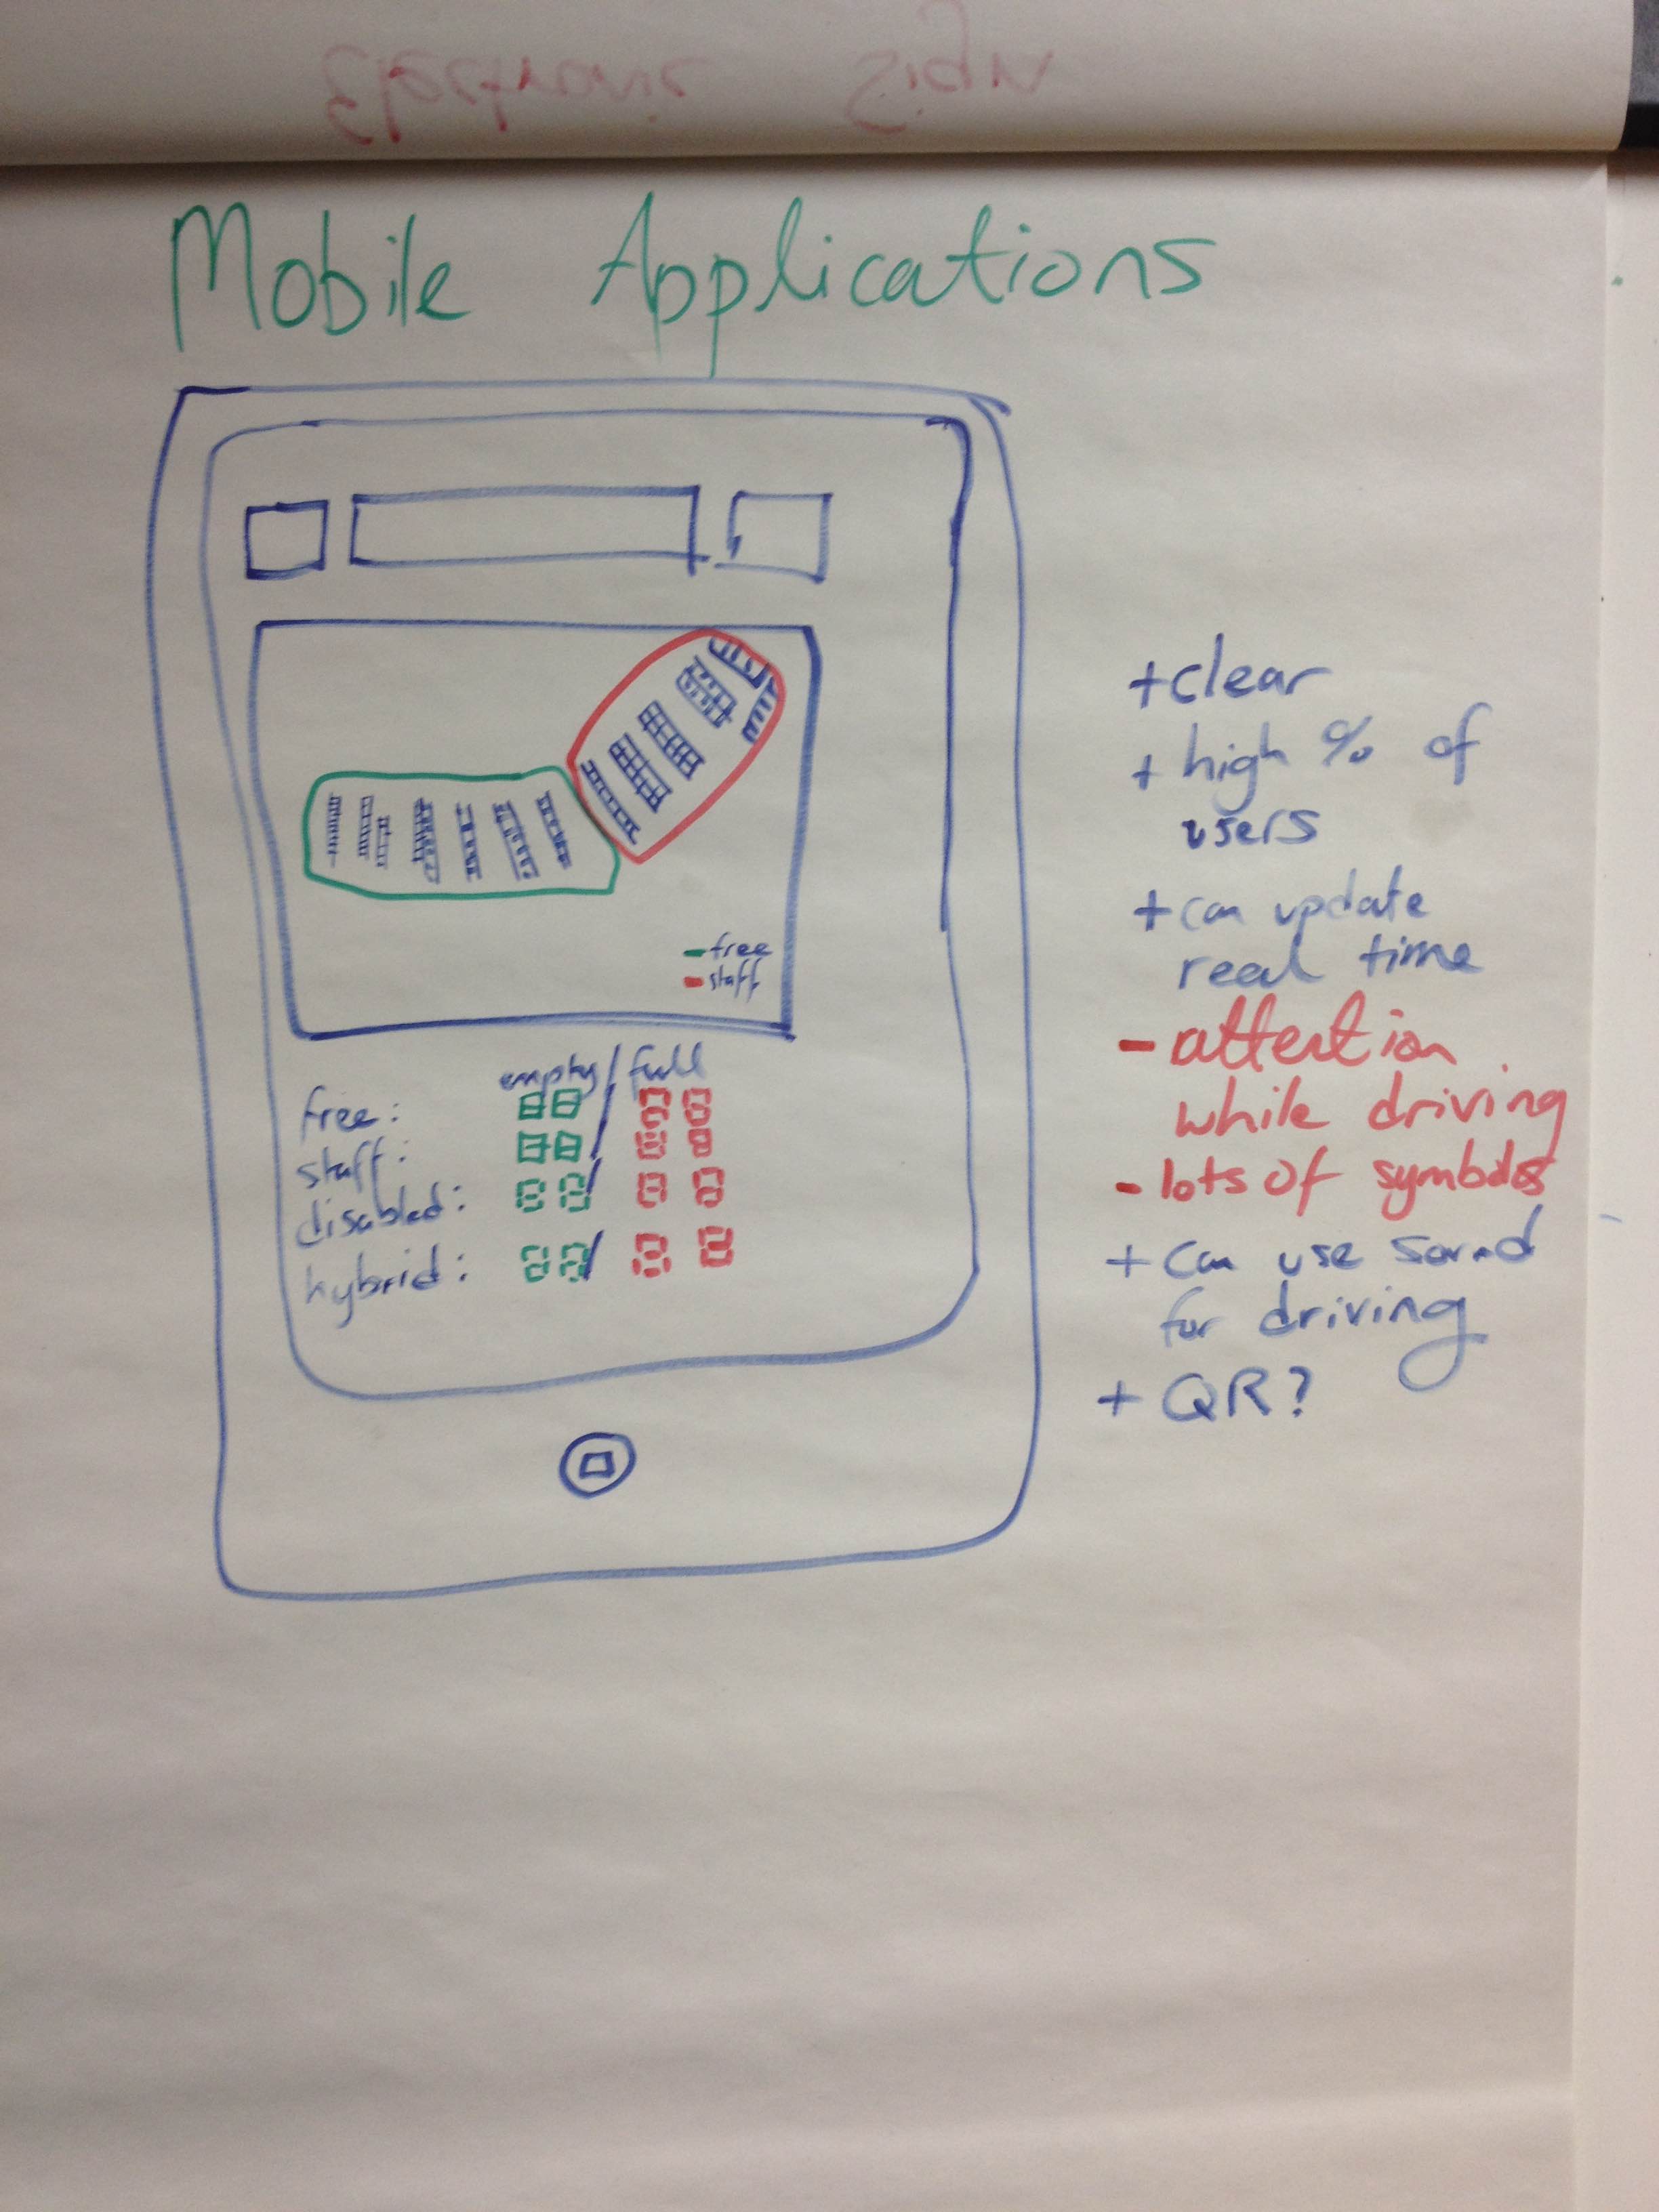 Mobile Applications
- free
- staff
empty / full
free: 88 / 88
staff: 88 / 88
disabled: 88 / 88
hybrid: 88 / 88
+ clear
+ high % of
users
+ can update
real time
- attention
while driving
- lots of symbols
+ can use sound
for driving
+ QR?